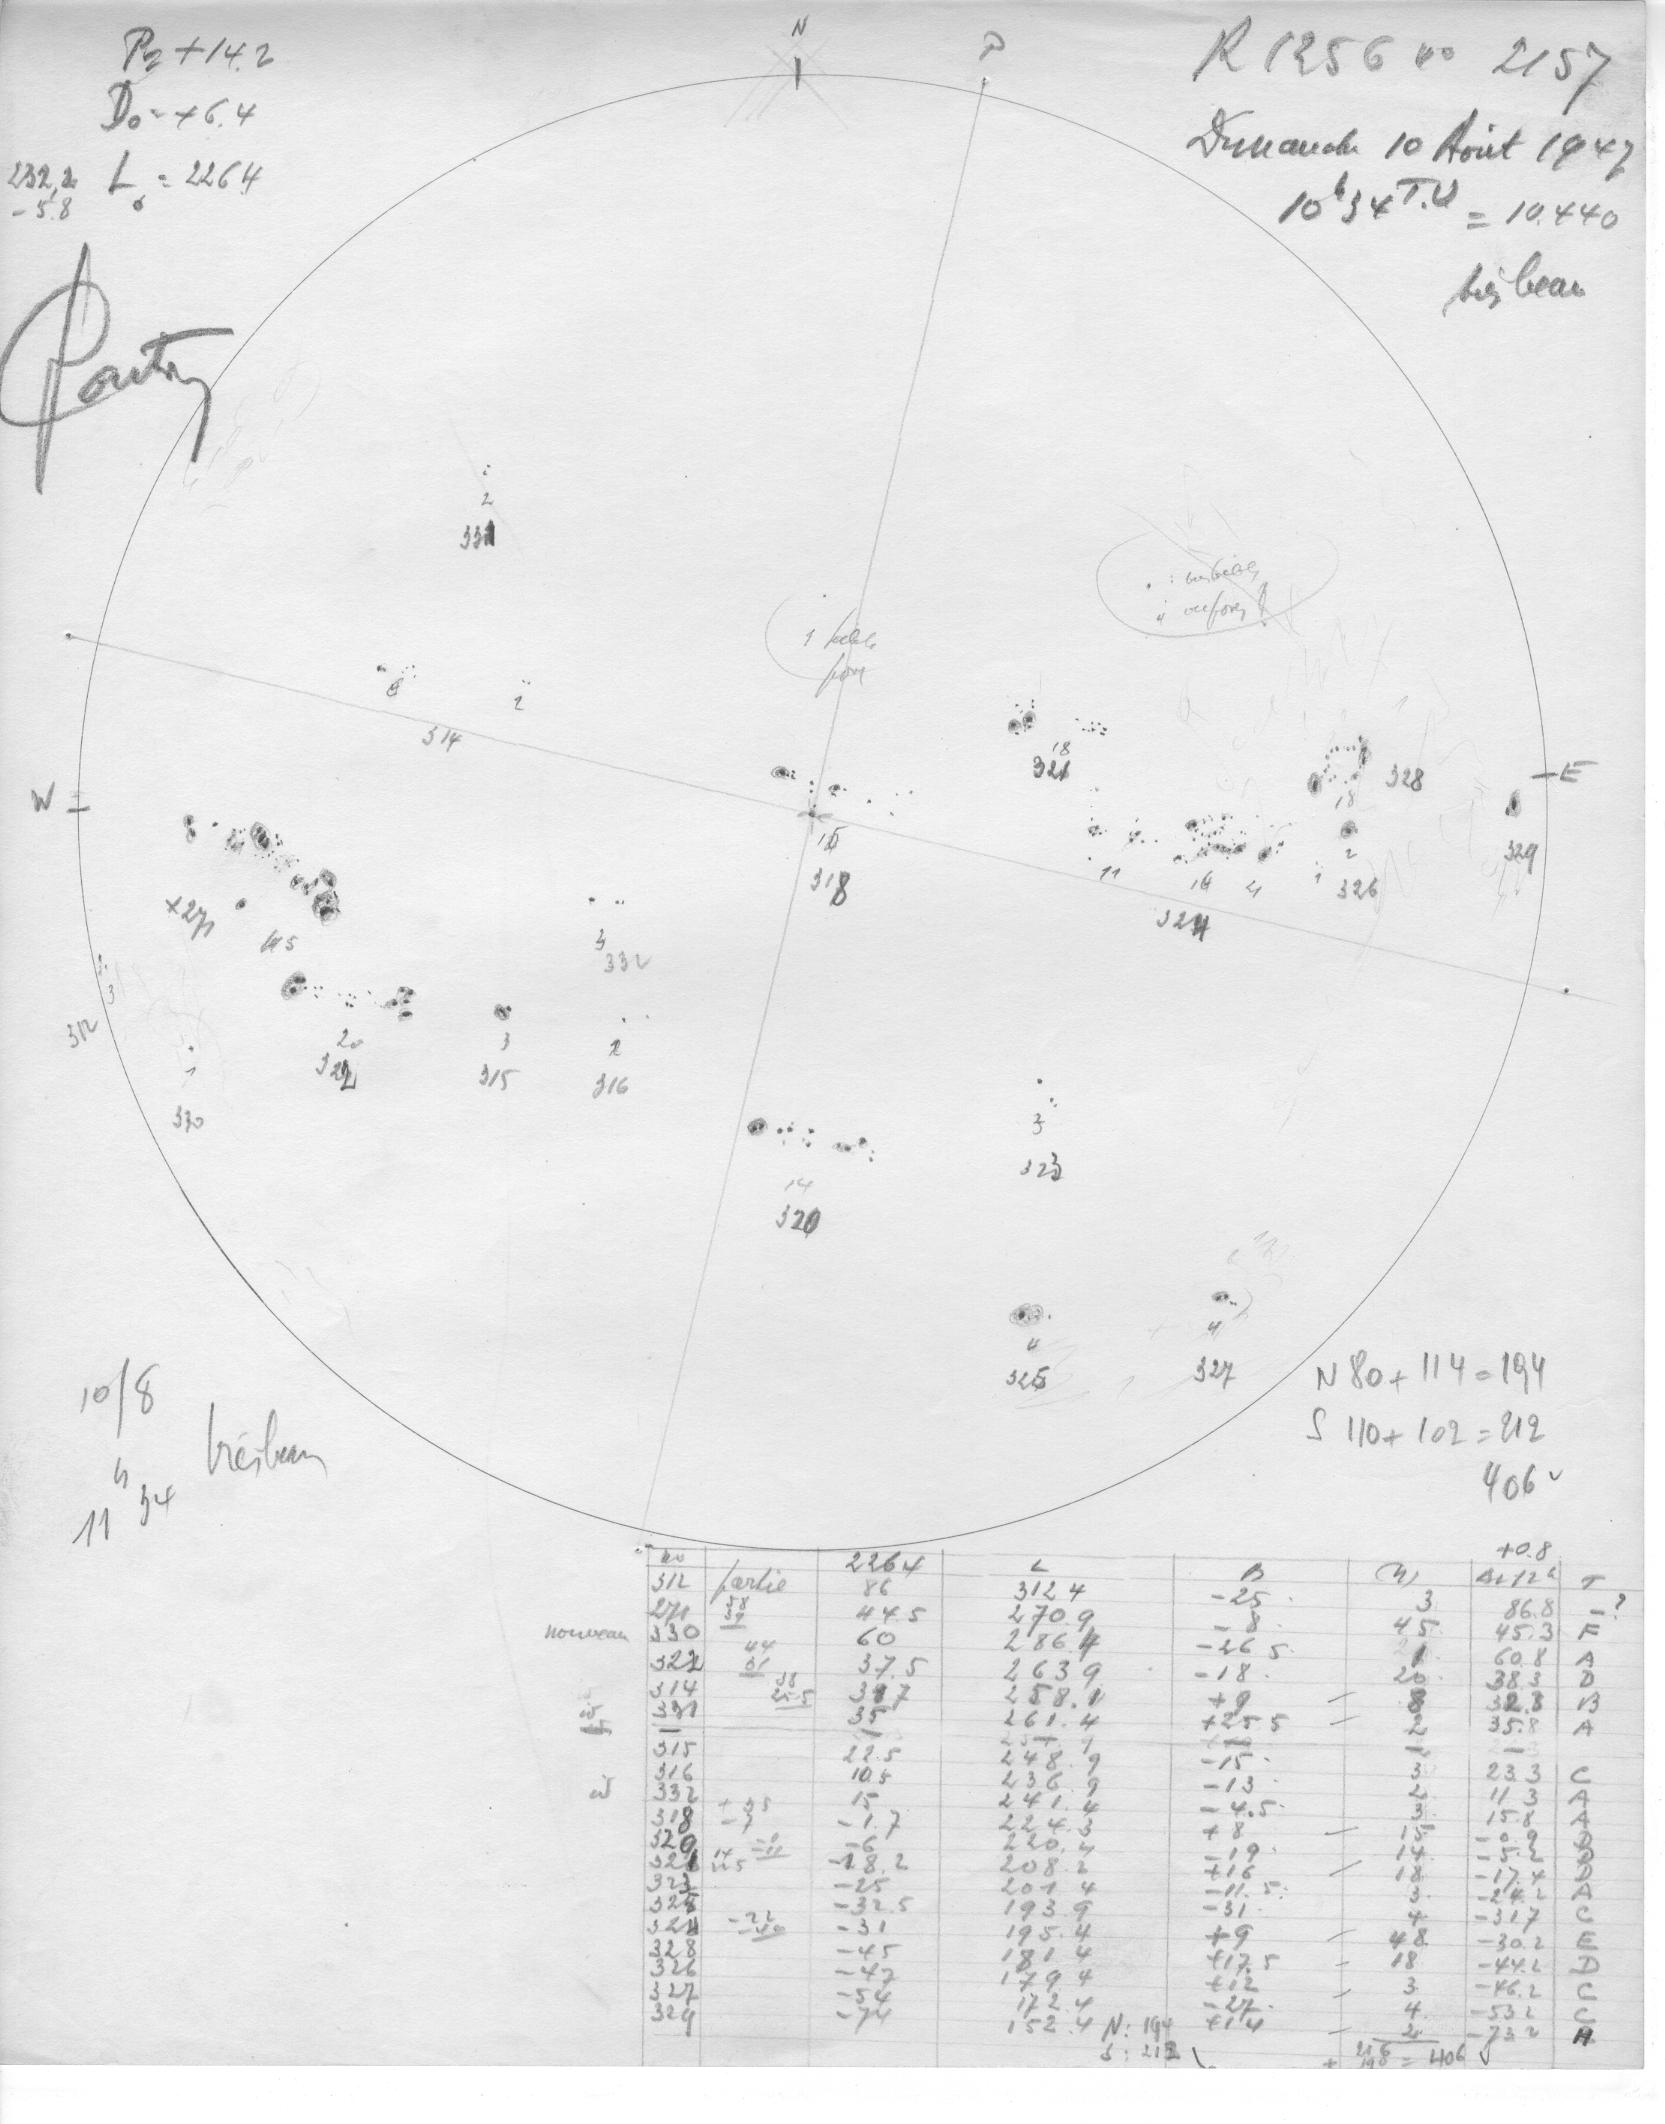 P= +14.2
D₀ = +6.4
232,2 L₀ = 226.4
-5.8
N
P
R 1256 no 2157
Dimanche 10 Août 1947
10h34 T.U = 10.440
très beau
2
331
8
2
314
1 faible
pore
18
321
18
328
W
E
15
318
11
16
4
324
1
2
326
329
271
45
3
332
3
312
20
322
3
315
2
316
1
330
14
320
3
323
4
325
4
327
10/8
très beau
11h34
N 80 + 114 = 194
S 110 + 102 = 212
406
+0.8
no 226.4 L B
312 partie 86 312.4 -25 3 86.8
271 44.5 270.9 -8 45 45.3 F
nouveau 330 60 286.4 -26.5 1 60.8 A
322 37.5 263.9 -18 20 38.3 D
314 258.1 +9 8 32.3 B
331 35 261.4 +25.5 2 35.8 A
315 22.5 248.9 -15 3 23.3 C
316 10.5 236.9 -13 2 11.3 A
332 15 241.4 -4.5 3 15.8 A
318 -1.7 224.3 +8 15
320 -6 220.4 -19 14
321 -18.2 208.2 +16 18 -17.4 D
323 -25 201.4 -11.5 3 -24.2 A
325 -32.5 193.9 -31 4 -31.7 C
324 -31 195.4 +9 48 -30.2 E
328 -45 181.4 +17.5 18 -44.2 D
326 -47 179.4 +12 3 -46.2 C
327 -54 172.4 -27 4 -53.2 C
329 -74 152.4 +14 2 -73.2 H
N: 194
S: 212
= 406